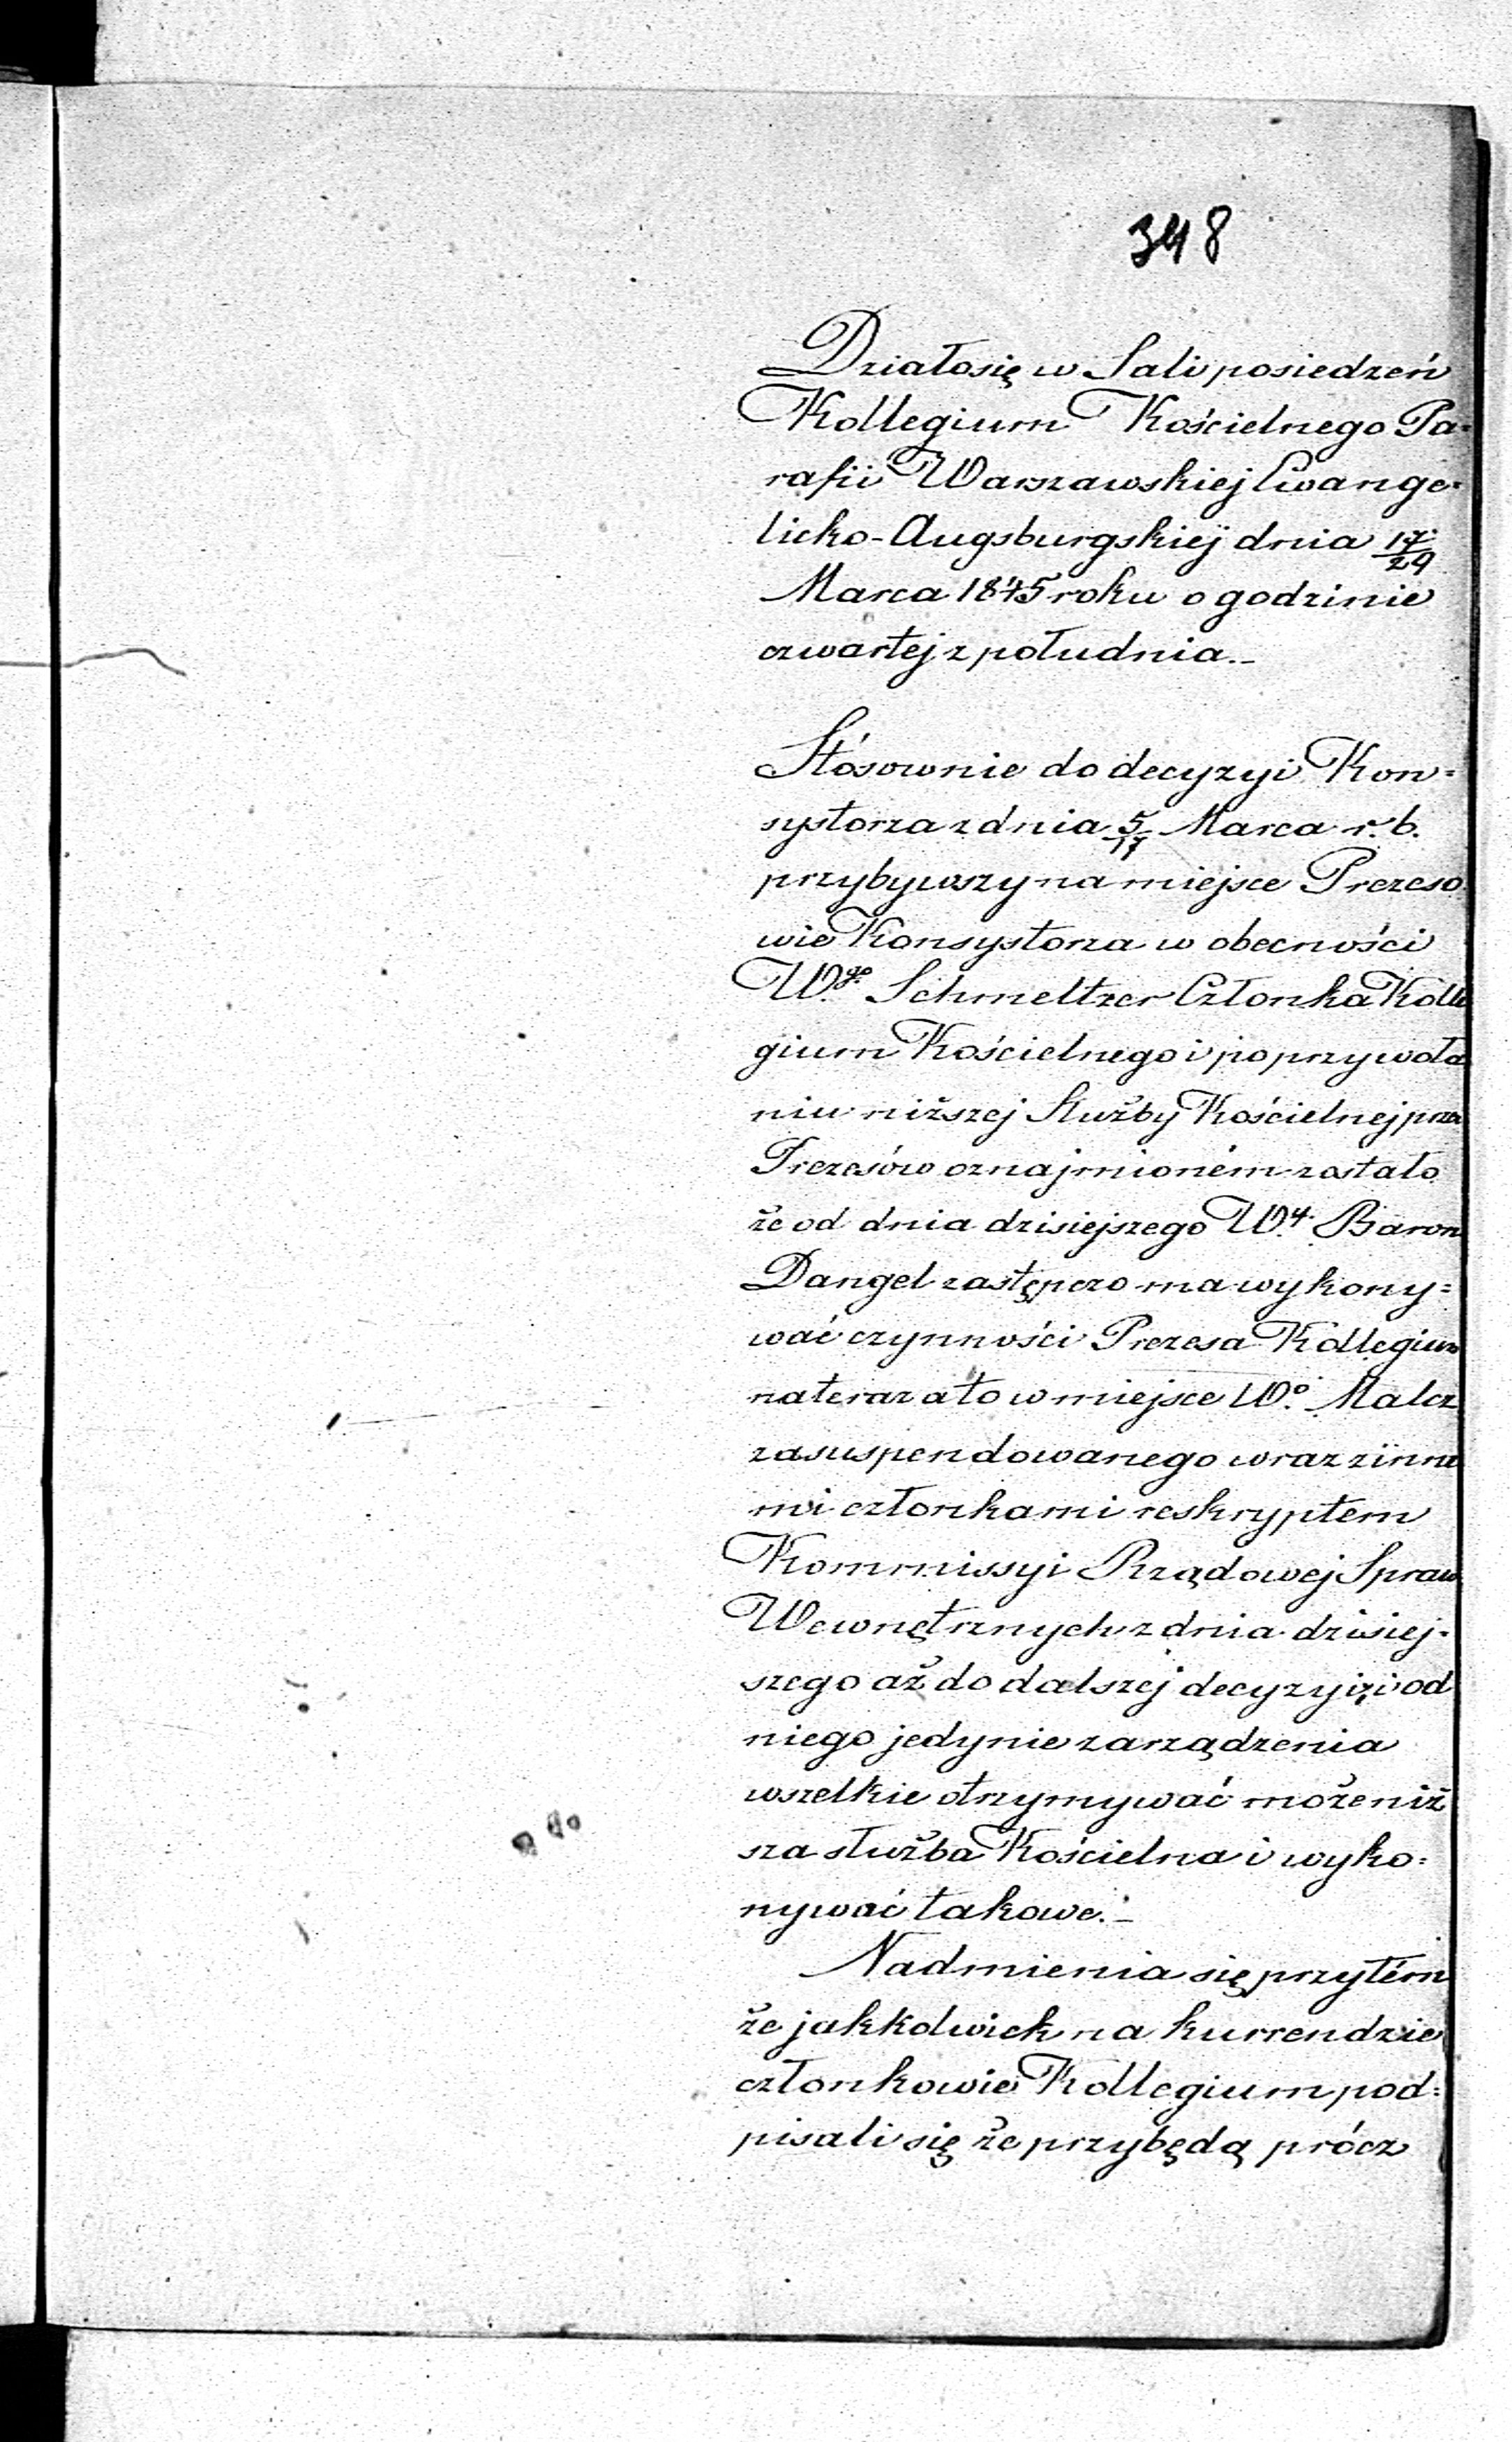 348
Działosię w Sali posiedzeń
Kollegium Kościelnego Pa=
rafii Warszawskiej Ewange=
licko-Augsburgskiej dnia 17/29
Marca 1845 roku o godzinie
czwartej z południa.–
Stósownie do decyzyi Kon=
systorza z dnia 5/17 Marca r. b.
przybywszy na miejsce Prezeso
wie Konsystorza w obecności
Wgo. Schmeltzer Członka Kolle
gium Kościelnego i po przywoła
niu niższej Służby Kościelnej przez
Prezesów oznajmioném zostało
że od dnia dzisiejszego Wy. Baron
Dangel zastępczo ma wykony=
wać czynności Prezesa Kollegium
na teraz a to w miejsce Wo. Malcz
zasuspendowanego wraz z inne
mi członkami reskryptem
Kommissyi Rządowej Spraw
Wewnętrznych z dnia dzisiej=
szego aż do dalszej decyzyi, i od
niego jedynie zarządzenia
wszelkie otrzymywać może niż
sza służba Kościelna i wyko=
nywać takowe.–
Nadmienia się przytém
że jakkolwiek na kurrendzie
członkowie Kollegium pod=
pisali się że przybędą prócz